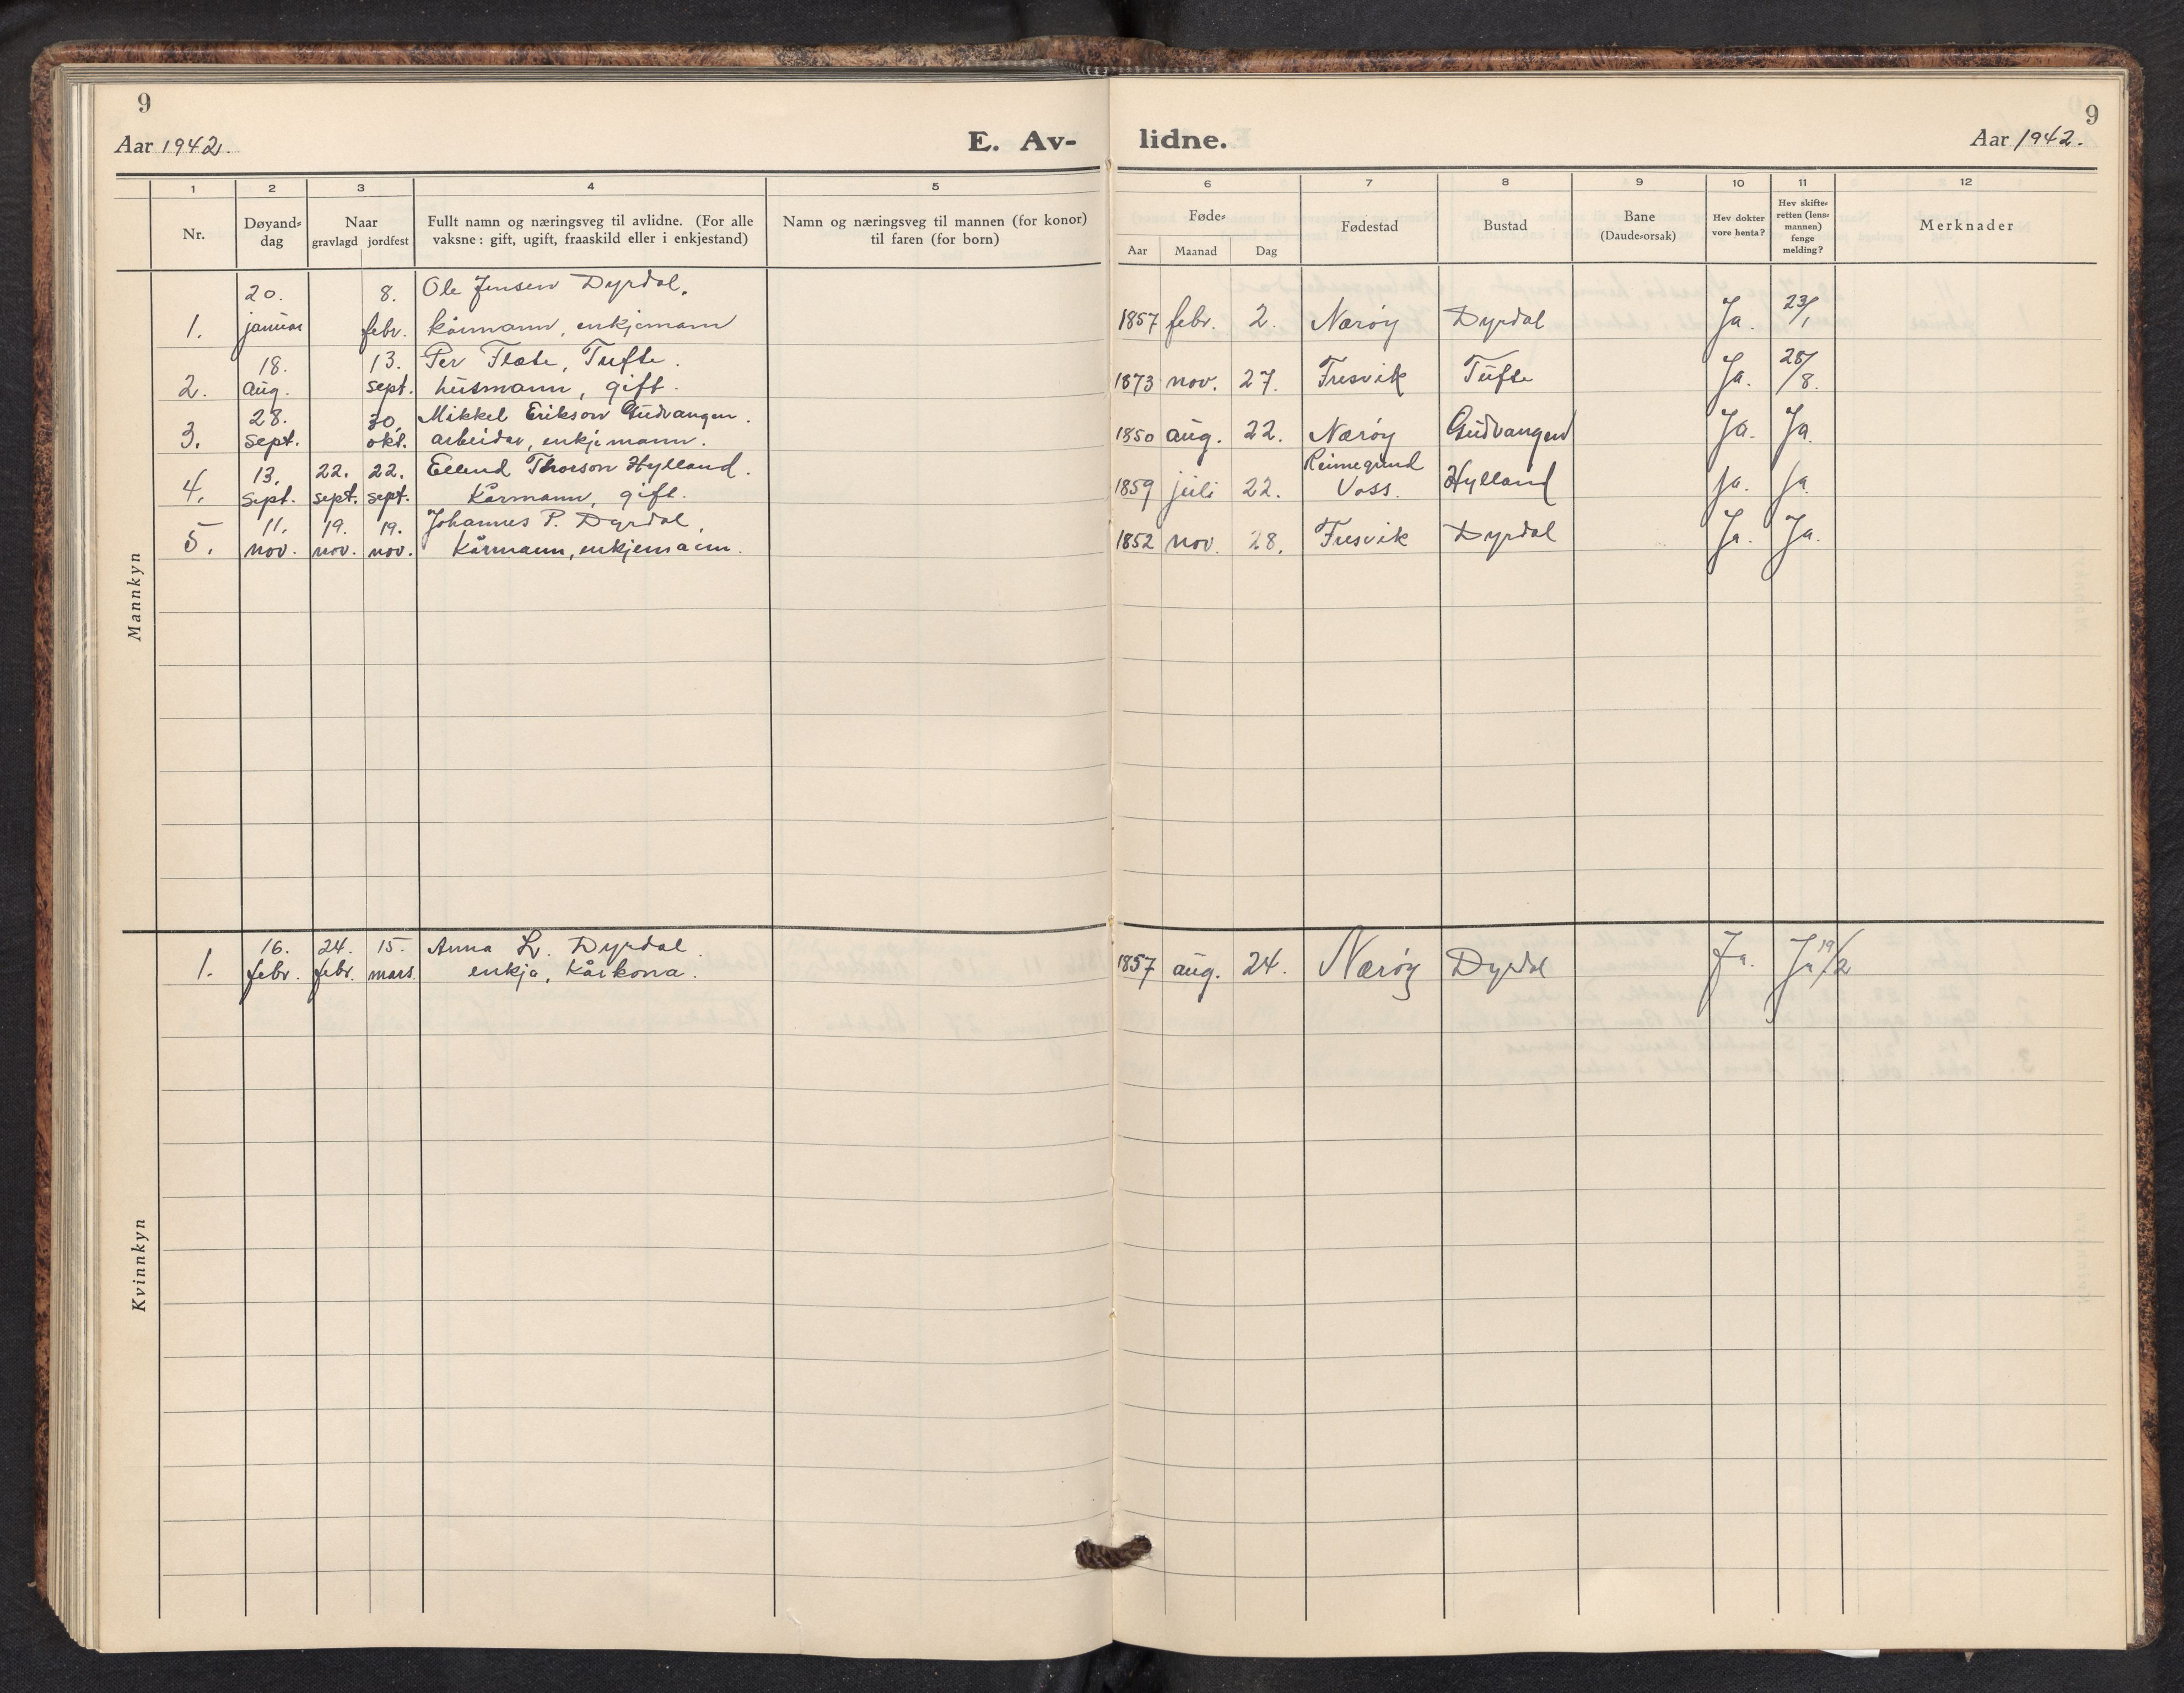 9
Aar 1942.
E. Av-
lidne.
9
Aar 1942.
1 2 3 4 5
Nr.
Døyand-
dag
Naar
gravlagd jordfest
Fullt namn og næringsveg til avlidne. (For alle
vaksne: gift, ugift, fraaskild eller i enkjestand)
Namn og næringsveg til mannen (for konor)
til faren (for born)
6 7 8 9 10 11 12
Føde-
Aar Maanad Dag
Fødestad
Bustad
Bane
(Daude-orsak)
Hev dokter
vore henta?
Hev skifte-
retten (lens-
mannen)
fenge
melding?
Merknader
Mannkyn
20. 8. Ole Jensen Dyrdal,
1. januar febr. kårmann, enkjemann 1857 febr. 2. Nærøy Dyrdal Ja. 23/1
18. 13. Per Flate, Tufte.
2. aug. sept. husmann, gift. 1873 nov. 27. Fresvik Tufte Ja. 28/8.
28. 30. Mikkel Erikson Gudvangen.
3. sept. okt. arbeidar, enkjemann. 1850 aug. 22. Nærøy Gudvangen Ja. Ja.
13. 22. 22. Ellend Thorson Hylland. Reimegrend
4. sept. sept. sept. Kårmann, gift. 1859 juli 22. Voss. Hylland Ja. Ja.
11. 19. 19. Johannes P. Dyrdal,
5. nov. nov. nov. Kårmann, enkjemann. 1852 nov. 28. Fresvik Dyrdal Ja. Ja.
Kvinnkyn
16. 24. 15. Anna L. Dyrdal.
1. febr. febr. mars. enkja, Kårkona. 1857 aug. 24. Nærøy Dyrdal Ja. Ja 19/2